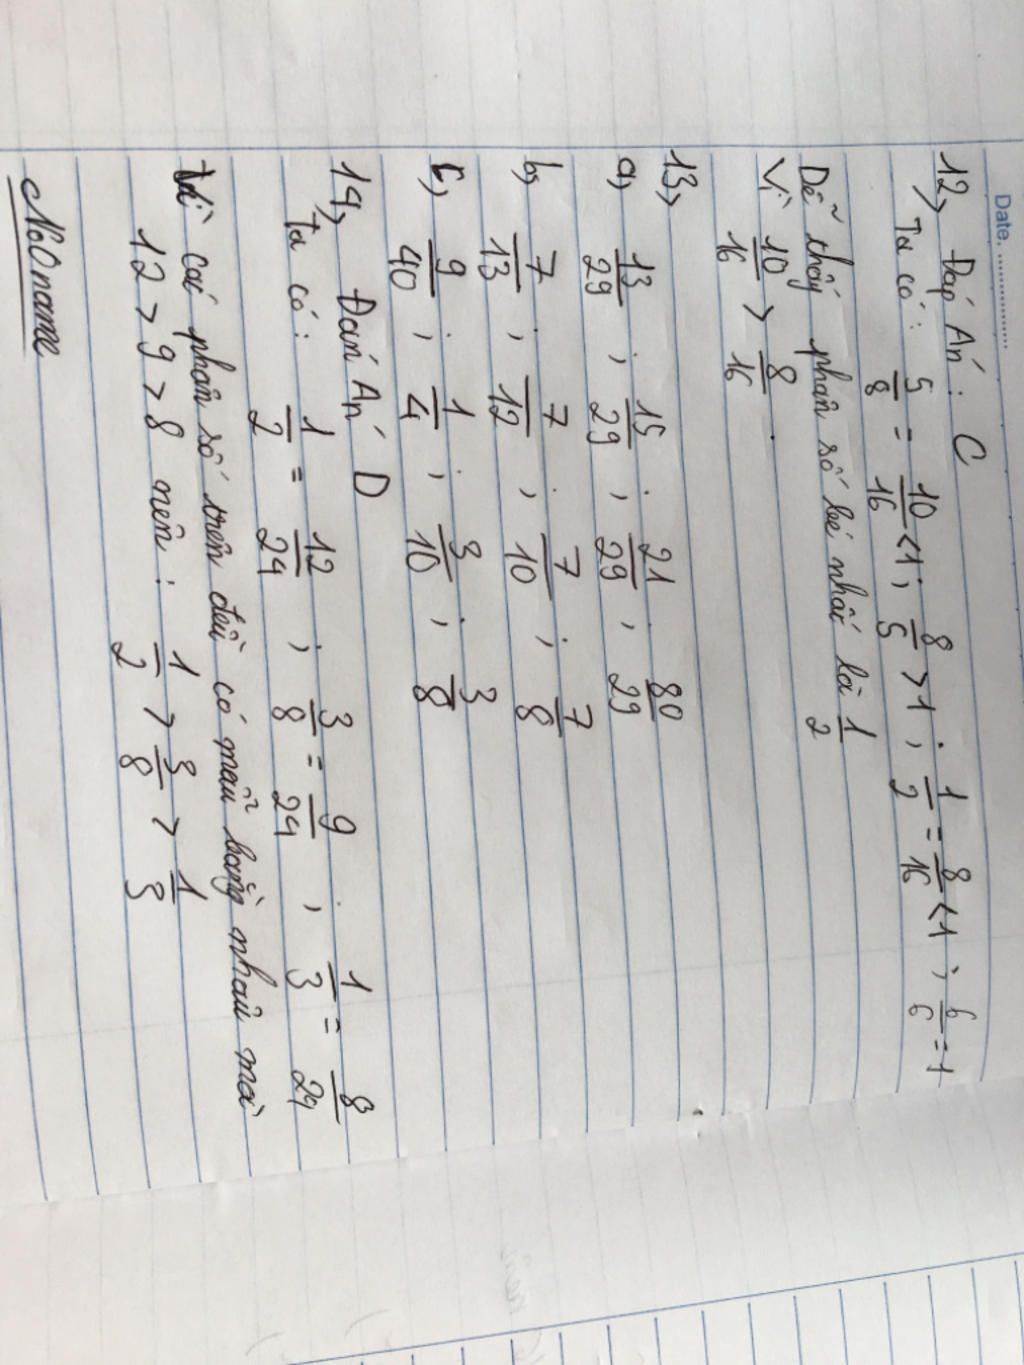 Date. ................
12, Đáp Án : C
Ta có : 5/8 = 10/16 < 1 ; 8/5 > 1 ; 1/2 = 8/16 < 1 ; 6/6 = 1
Dễ thấy phân số bé nhất là 1/2
Vì 10/16 > 8/16 .
13,
a, 13/29 ; 15/29 ; 21/29 ; 80/29
b, 7/13 ; 7/12 ; 7/10 ; 7/8
c, 9/40 ; 1/4 ; 3/10 ; 3/8
14, Đáń Án D
Ta có : 1/2 = 12/24 ; 3/8 = 9/24 ; 1/3 = 8/24
Vì các phân số trên đều có mẫu bằng nhau mà
12 > 9 > 8 nên : 1/2 > 3/8 > 1/3
No0name